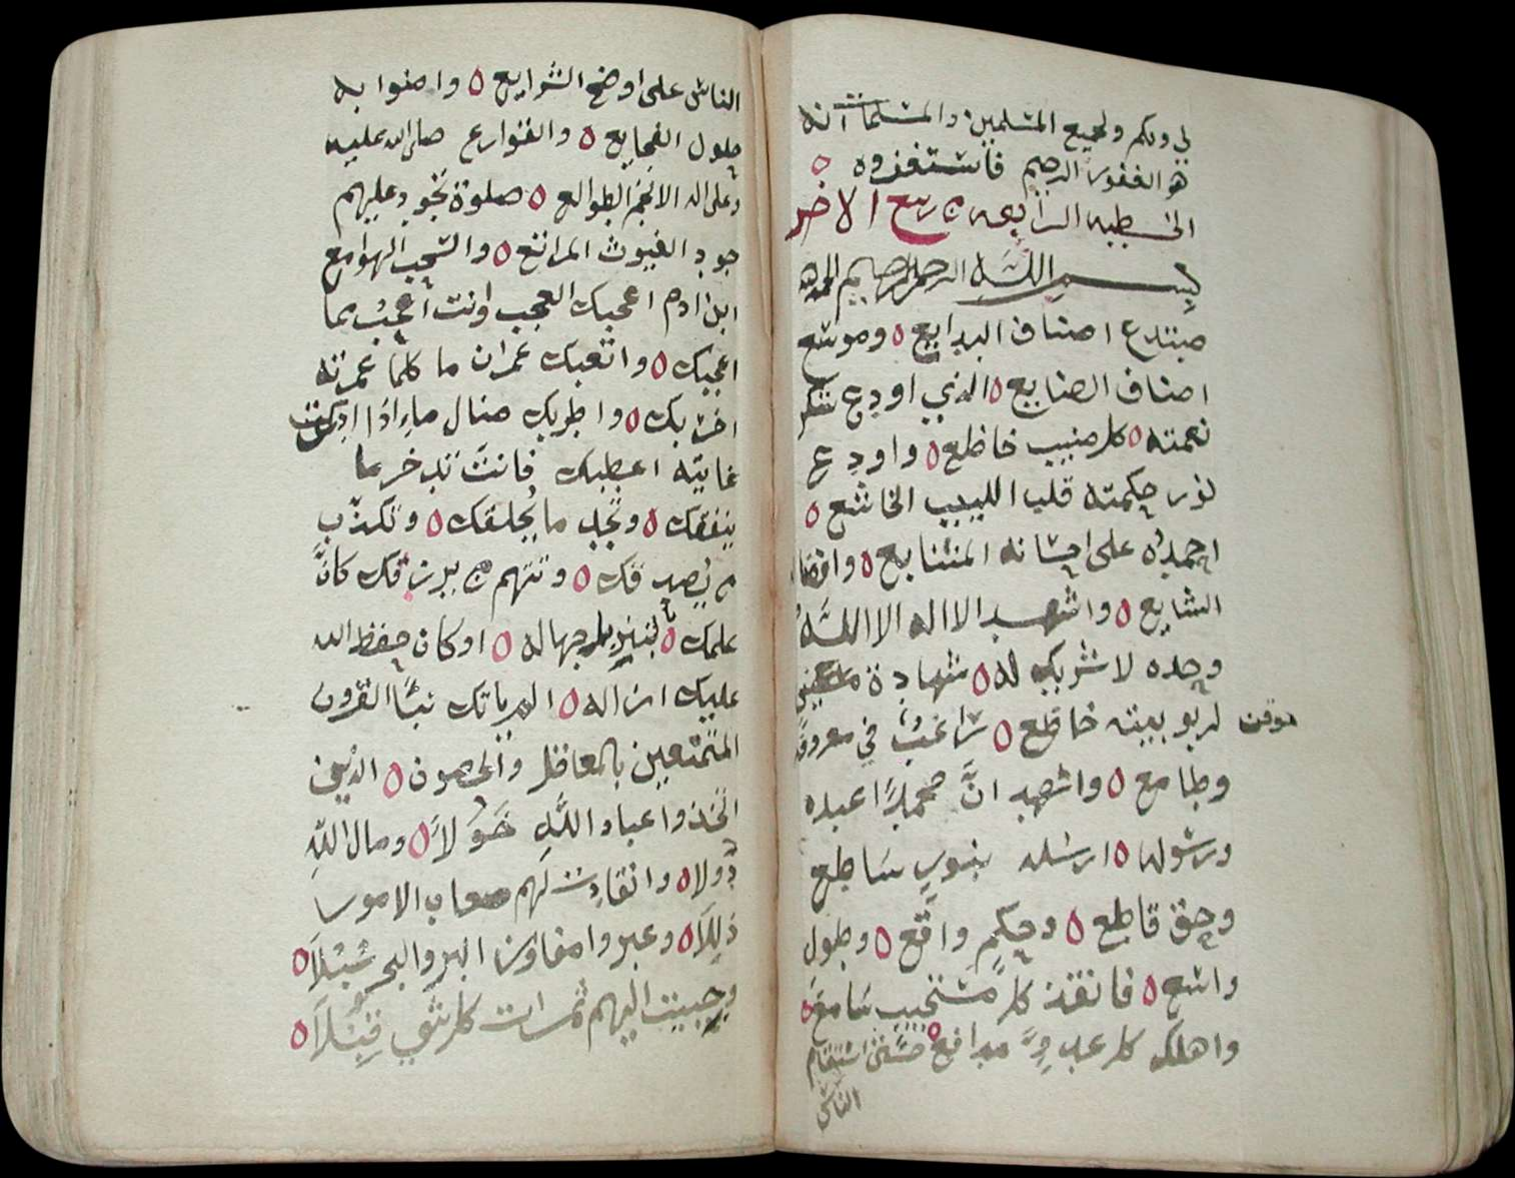 لي ولكم ولجميع المسلمين والمسلمات انه
هو الغفور الرحيم فاستغفروه ه
الخطبه الرابعه من ربيع الاخر
بسم الله الرحمن الرحيم الحمد لله
مبتدع اصناف البدايع ه وموسع
اصناف الصنايع ه الذي اودع شكر
نعمته ه كل منيب خاظع ه واودع
نور حكمته قلب اللبيب الخاشع ه
احمده على احسانه المتتابع ه وافضاله
الشايع ه واشهد الا اله الا الله
وحده لا شريك له ه شهادة
موقن لربوبيته خاظع ه راغب في معروفه
وطامع ه واشهد انَّ محمدًا عبده
ورسوله ه ارسله بنورٍ ساطع
وحق قاطع ه وحكمٍ واقع ه وطول
واسع ه فانقذ كل مستجيب سامع ه
واهلك كل عدوٍّ مدافع ه حتى استقام
الناس
الناس على اوضح الشرايع ه وامنوا به
حلول الفجايع ه والقوارع صلى الله عليه
وعلى اله الانجم الطوالع ه صلوة تجود عليهم
جود الغيوث المرابع ه والسحب الهوامع
ابن ادم اعجبك العجب وانت اعجب مما
اعجبك ه واتعبك عمران ما كلما عمرته
اخربك ه واطربك منال ما اذا ادركت
غايته اعطبك فانت تدخر ما
ينفقك ه وتجد ما يخلقك ه وتكذب
من يصدقك ه وتتهم من يرزقك كانَّ
علمك ه لتنزيله جهاله ه او كان حفظ الله
عليك ازاله ه الم ياتك نبأ القرون
المتمتعين بالمعاقل والحصون ه الذين
اتخذوا عباد اللهِ خَوَلاً ه ومال اللهِ
دُولا ه وانقادت لهم صعاب الامور
ذللاً ه وعبروا مفاوز البر والبحر سُبُلاً ه
وجبيت اليهم ثمرات كل شي قِبَلاً ه